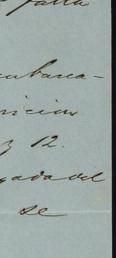 falta
embarca-
nicion
y 12.
gada del
se